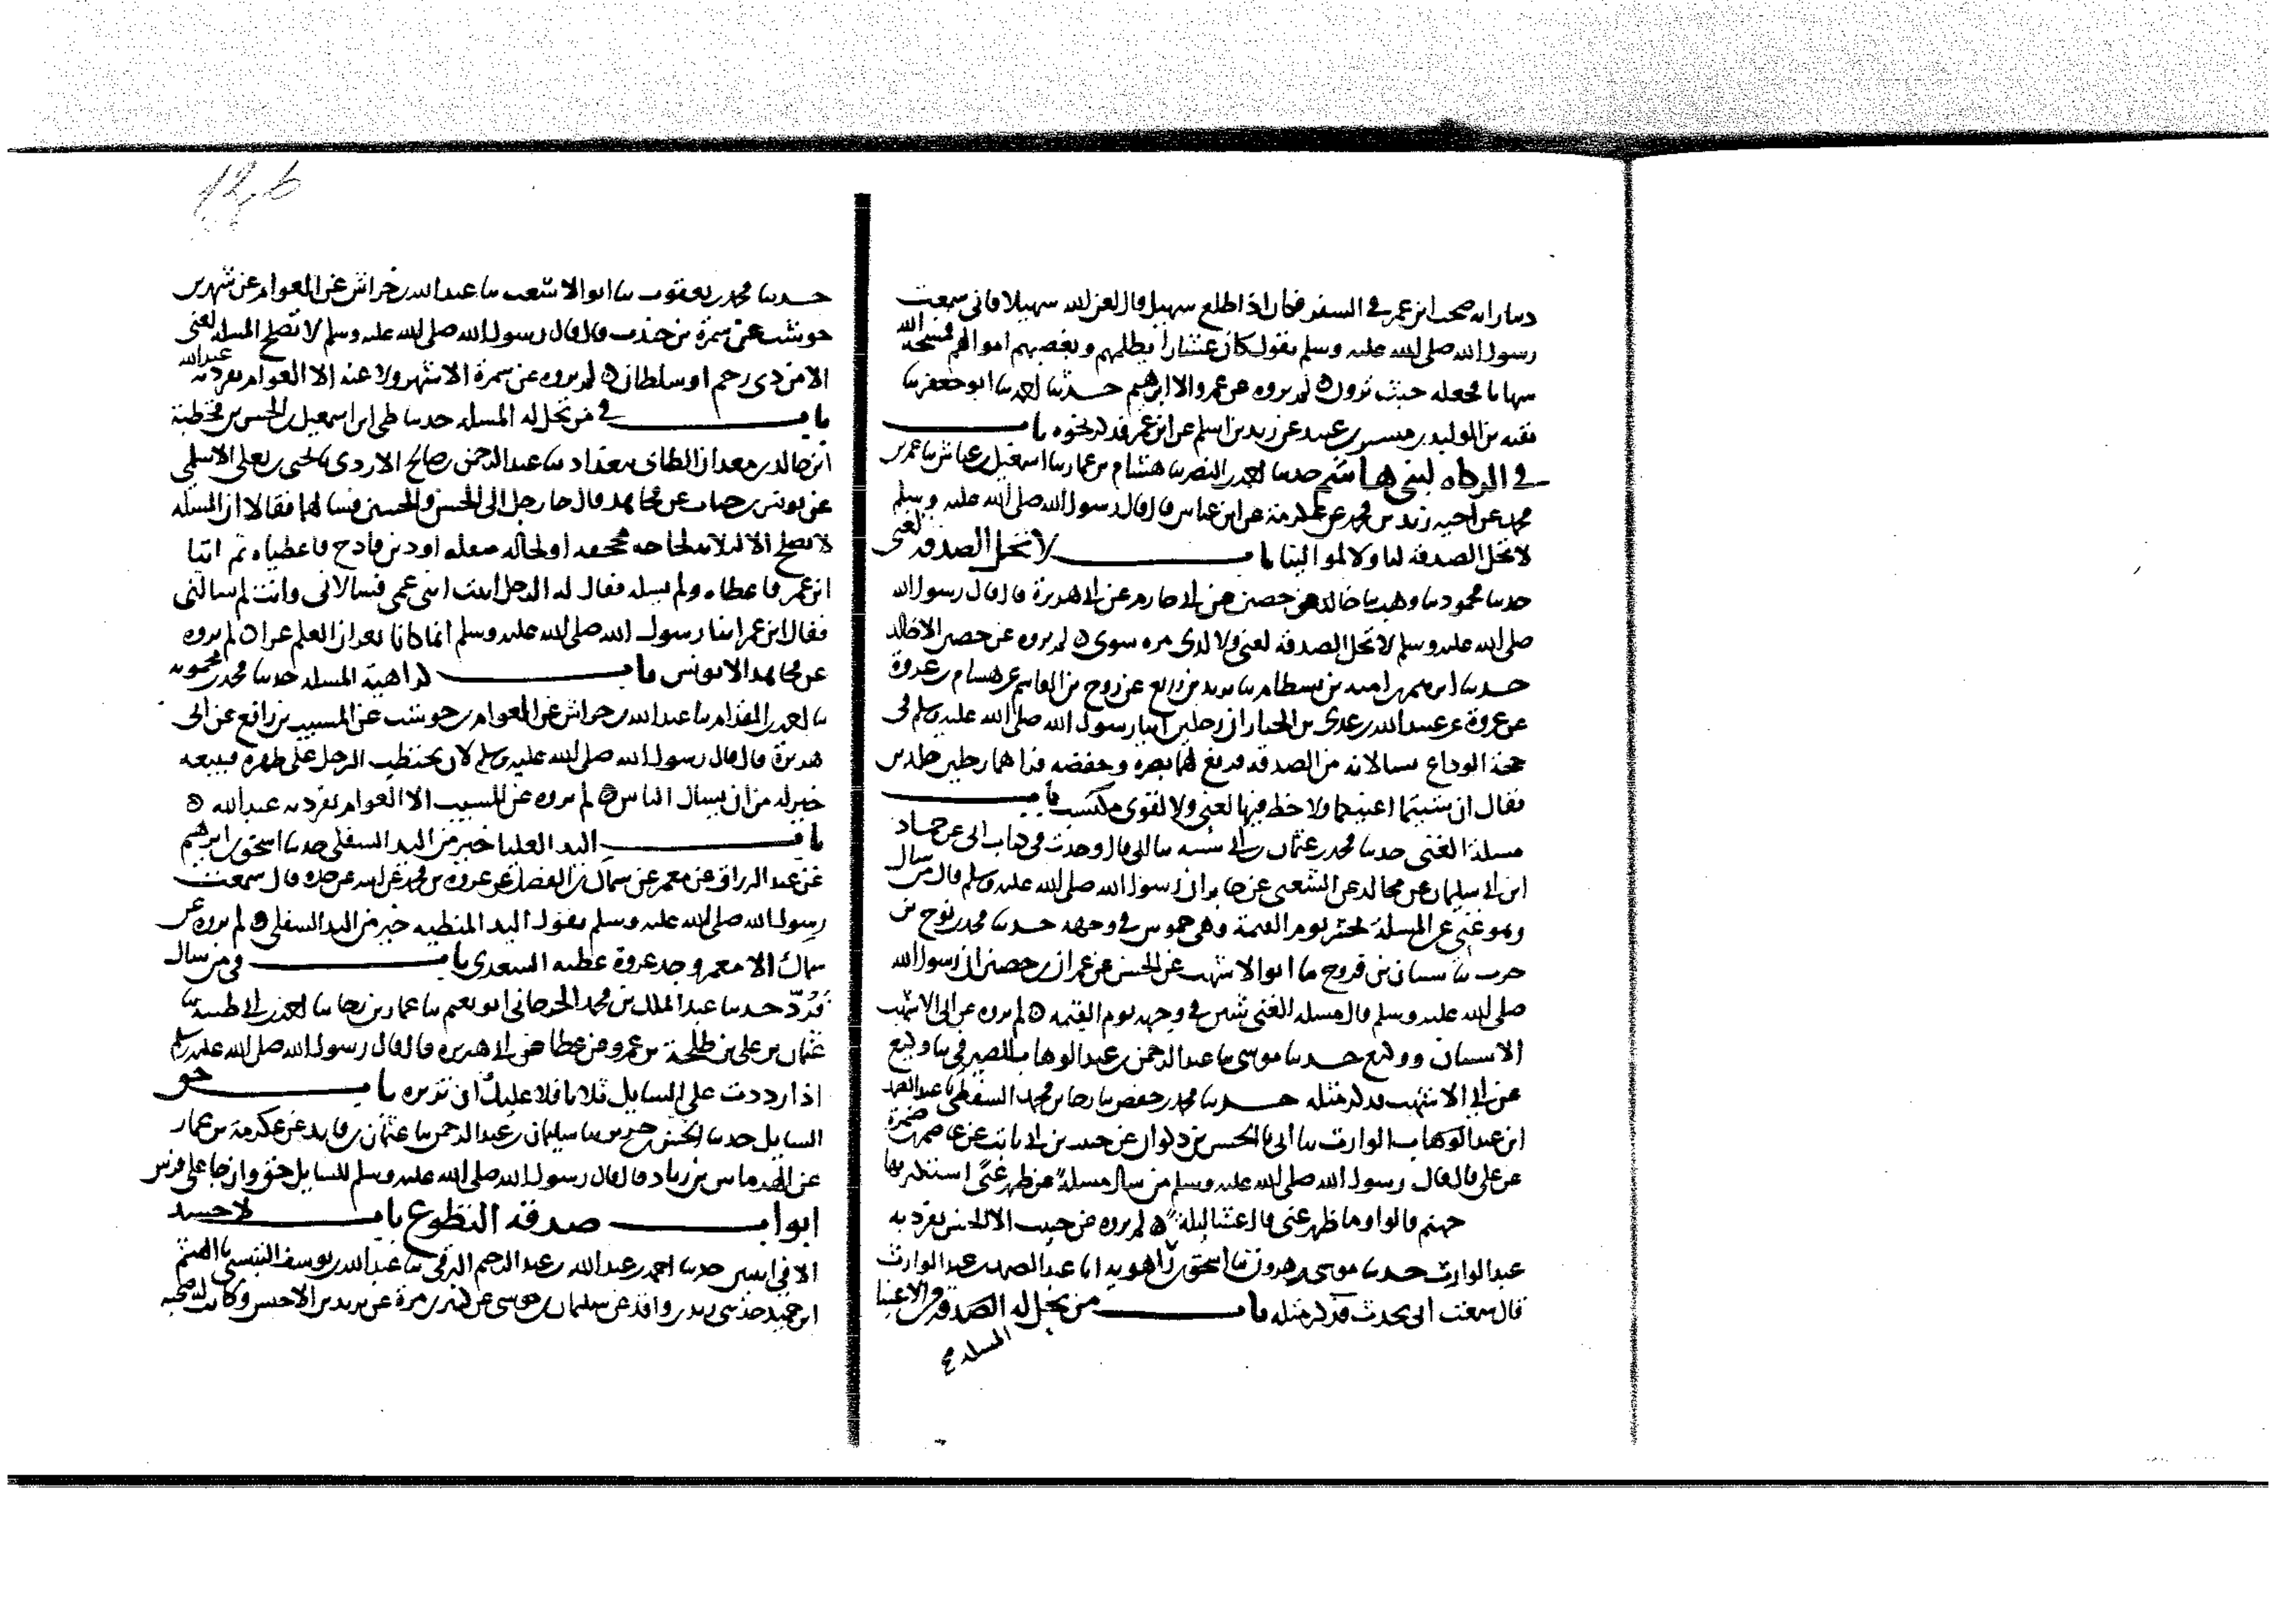 دينار انه صحب ابن عمر في السفر فكان اذا طلع سهيل قال لعن الله سهيلا فاني سمعت
رسول الله صلى الله عليه وسلم يقول كان عشارا يظلمهم ويغصبهم اموالهم فمسخه الله
شهابا فجعله حيث ترون ه لم يروه عن عمرو الا ابراهيم حدثنا احمد ثنا ابو جعفر ثنا
بقية بن الوليد عن مبشر بن عبيد عن زيد بن اسلم عن ابن عمر فذكر نحوه باب
في الزكاه لبني هاشم حدثنا احمد بن النضر ثنا هشام بن عمار ثنا اسمعيل بن عياش ثنا عمر بن
محمد عن اخيه زيد بن محمد عن عكرمة عن ابن عباس قال قال رسول الله صلى الله عليه وسلم
لا تحل الصدقة لنا ولا لموالينا باب لا تحل الصدقة لغني
حدثنا محمود ثنا وهب ثنا خالد عن حصين عن ابي حازم عن ابي هريرة قال قال رسول الله
صلى الله عليه وسلم لا تحل الصدقة لغني ولا لذي مره سوي ه لم يروه عن حصين الا خالد
حدثنا ابرهيم ثنا امية بن بسطام ثنا يزيد بن زريع عن روح بن القاسم عن هشام بن عروة
عن عروة عن عبيد الله بن عدي بن الخيار ان رجلين اتيا رسول الله صلى الله عليه وسلم في
حجة الوداع يسالانه من الصدقة فرفع لهما بصره وخفضه فراهما رجلين جلدين
فقال ان شئتما اعطيتكما ولا حظ فيها لغني ولا لقوي مكتسب باب
مسلة الغني حدثنا محمد بن عثمان بن ابي شيبه ثنا ابي قال وجدت في كتاب ابي عن حماد
ابن ابي سليمان عن مجالد عن الشعبي عن جابر ان رسول الله صلى الله عليه وسلم قال من سال
وهو غني عن المسلة يحشر يوم القيمة وهي خموش في وجهه حدثنا محمد بن نوح بن
حرب ثنا شيبان بن فروخ ثنا ابو الاشهب عن الحسن عن عمران بن حصين ان رسول الله
صلى الله عليه وسلم قال مسلة الغني شين في وجهه يوم القيمه ه لم يروه عن ابي الاشهب
الا شيبان ووكيع حدثنا موسى ثنا عبد الرحمن بن عبد الوهاب الصيرفي ثنا وكيع
عن ابي الاشهب فذكر مثله حدثنا محمد بن حفص ثنا رجا بن محمد السقطي ثنا عبد الصمد
ابن عبد الوهاب الوارث ثنا ابي ثنا الحسن بن ذكوان عن حبيب بن ابي ثابت عن عاصم بن ضمرة
عن علي قال قال رسول الله صلى الله عليه وسلم من سال مسلة عن ظهر غنى استكثر بها
جهنم قالوا وما ظهر غنى قال عشا ليلة ه لم يروه عن حبيب الا الحسن تفرد به
عبد الوارث حدثنا موسى بن هرون ثنا اسحق بن راهويه انا عبد الصمد بن عبد الوارث
قال سمعت ابي يحدث فذكر مثله باب من تحل له الصدقة من الاغنيا
المسله
حدثنا محمد بن يعقوب ثنا ابو الاشعث ثنا عبد الله بن خراش عن العوام عن شهر بن
حوشب عن سمرة بن جندب قال قال رسول الله صلى الله عليه وسلم لا تصلح المسله لغني
الا من ذي رحم او سلطان ه لم يروه عن سمرة الا شهر ولا عنه الا العوام تفرد به عبد الله
باب في من تحل له المسله حدثنا علي بن اسمعيل بن الحسن بن قحطبة
ابن خالد بن معدان الطائي ببغداد ثنا عبد الرحمن بن صالح الازدي ثنا يحيى بن يعلى الاسلمي
عن يونس بن خباب عن مجاهد قال جا رجل الى الحسن والحسين فسالهما فقالا ان المسله
لا تصلح الا لثلاثة لحاجه مجحفه او لحماله مثقله او دين فادح فاعطياه ثم اتى
ابن عمر فاعطاه ولم يسله فقال له الرجل اتيت ابني عمي فسالاني وانت لم تسالني
فقال ابن عمر ابنا رسول الله صلى الله عليه وسلم انما كانا يغران العلم غرا ه لم يروه
عن مجاهد الا يونس باب كراهية المسله حدثنا محمد بن محمويه
ثنا احمد بن المقدام ثنا عبد الله بن خراش عن العوام بن حوشب عن المسيب بن رافع عن ابي
هريرة قال قال رسول الله صلى الله عليه وسلم لان يحتطب الرجل على ظهره فيبيعه
خير له من ان يسال الناس ه لم يروه عن المسيب الا العوام تفرد به عبد الله ه
باب اليد العليا خير من اليد السفلى حدثنا اسحق بن ابرهيم
عن عبد الرزاق عن معمر عن سماك بن الفضل عن عروة بن محمد عن ابيه عن جده قال سمعت
رسول الله صلى الله عليه وسلم يقول اليد المنطيه خير من اليد السفلى ه لم يروه عن
سماك الا معمر وجد عروة عطيه السعدي باب في من سال
فرد حدثنا عبد الملك بن محمد الجرجاني ابو نعيم ثنا عمار بن رجا ثنا احمد بن ابي طيبه ثنا
عثمان بن علي بن طلحة بن عمرو عن عطا عن ابي هريره قال قال رسول الله صلى الله عليه وسلم
اذا رددت على السايل ثلاثا فلا عليك ان تزبره باب حق
السايل حدثنا الحسن بن جرير ثنا سليمان بن عبد الرحمن ثنا عثمان بن فايد عن عكرمة بن عمار
عن الهرماس بن زياد قال قال رسول الله صلى الله عليه وسلم للسايل حق وان جا على فرس
ابواب صدقة التطوع باب لا حسد
الا في اثنين حدثنا احمد بن عبد الله بن عبد الرحيم البرقي ثنا عبد الله بن يوسف التنيسي ثنا الهيثم
ابن حميد حدثني زيد بن واقد عن سليمان بن موسى عن كثير بن مرة عن يزيد بن الاخنس وكانت له صحبه